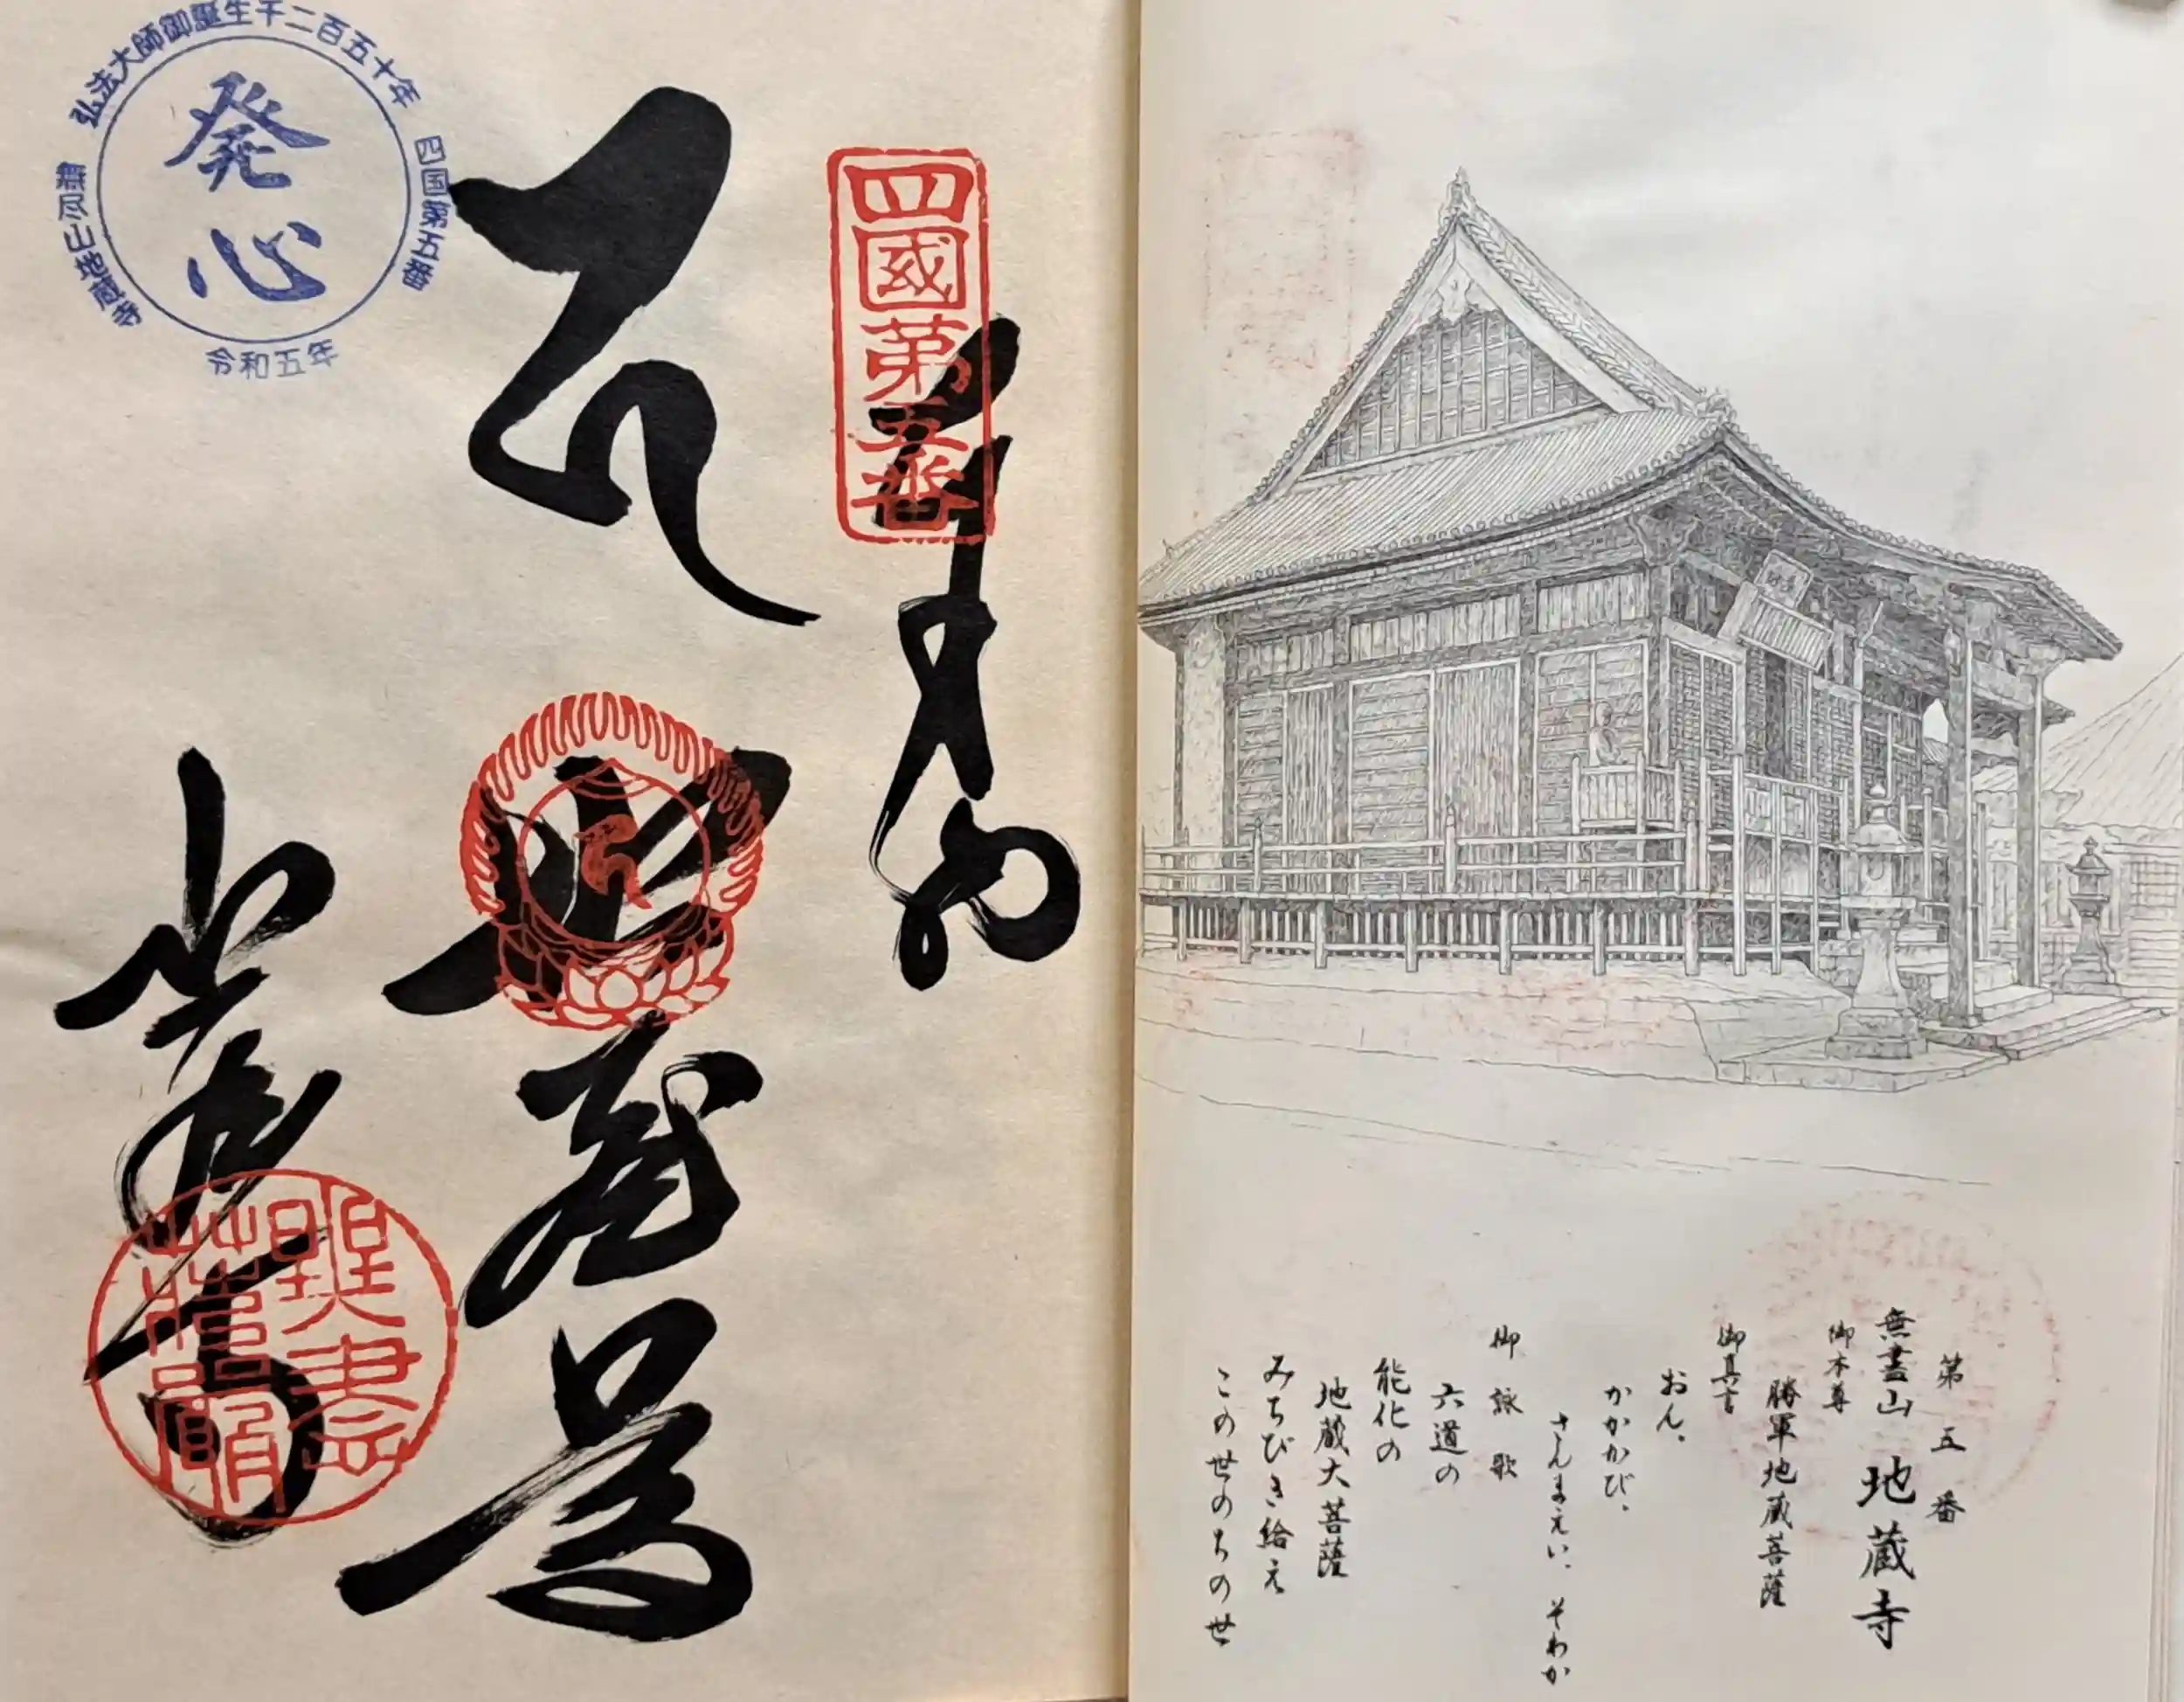 第五番
無尽山 地蔵寺
御本尊
勝軍地蔵菩薩
御真言
おん。
かかかび。
さんまえい。そわか
御詠歌
六道の
能化の
地蔵大菩薩
みちびき給え
この世のちの世
四國第五番
奉納
地蔵尊
地蔵寺
弘法大師御誕生千二百五十年
四国第五番
発心
無尽山地蔵寺
令和五年